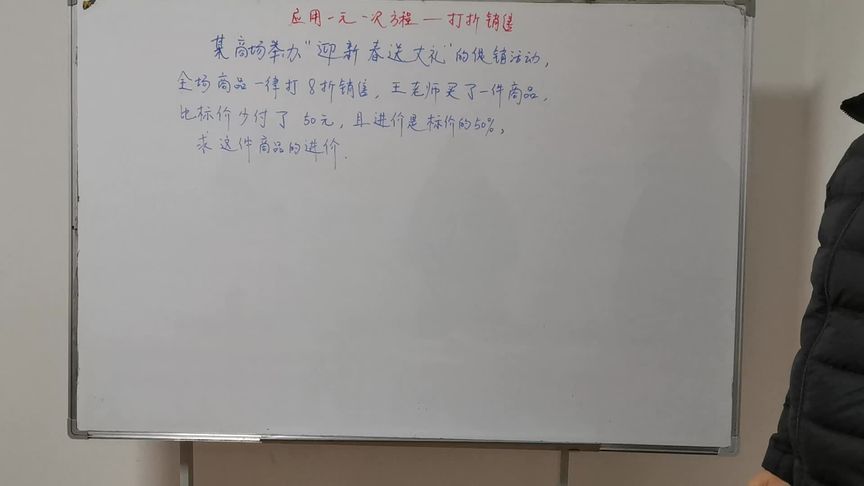 应用一元一次方程—打折销售
某商场举办“迎新春送大礼”的促销活动，
全场商品一律打8折销售，王老师买了一件商品，
比标价少付了50元，且进价是标价的50%，
求这件商品的进价.